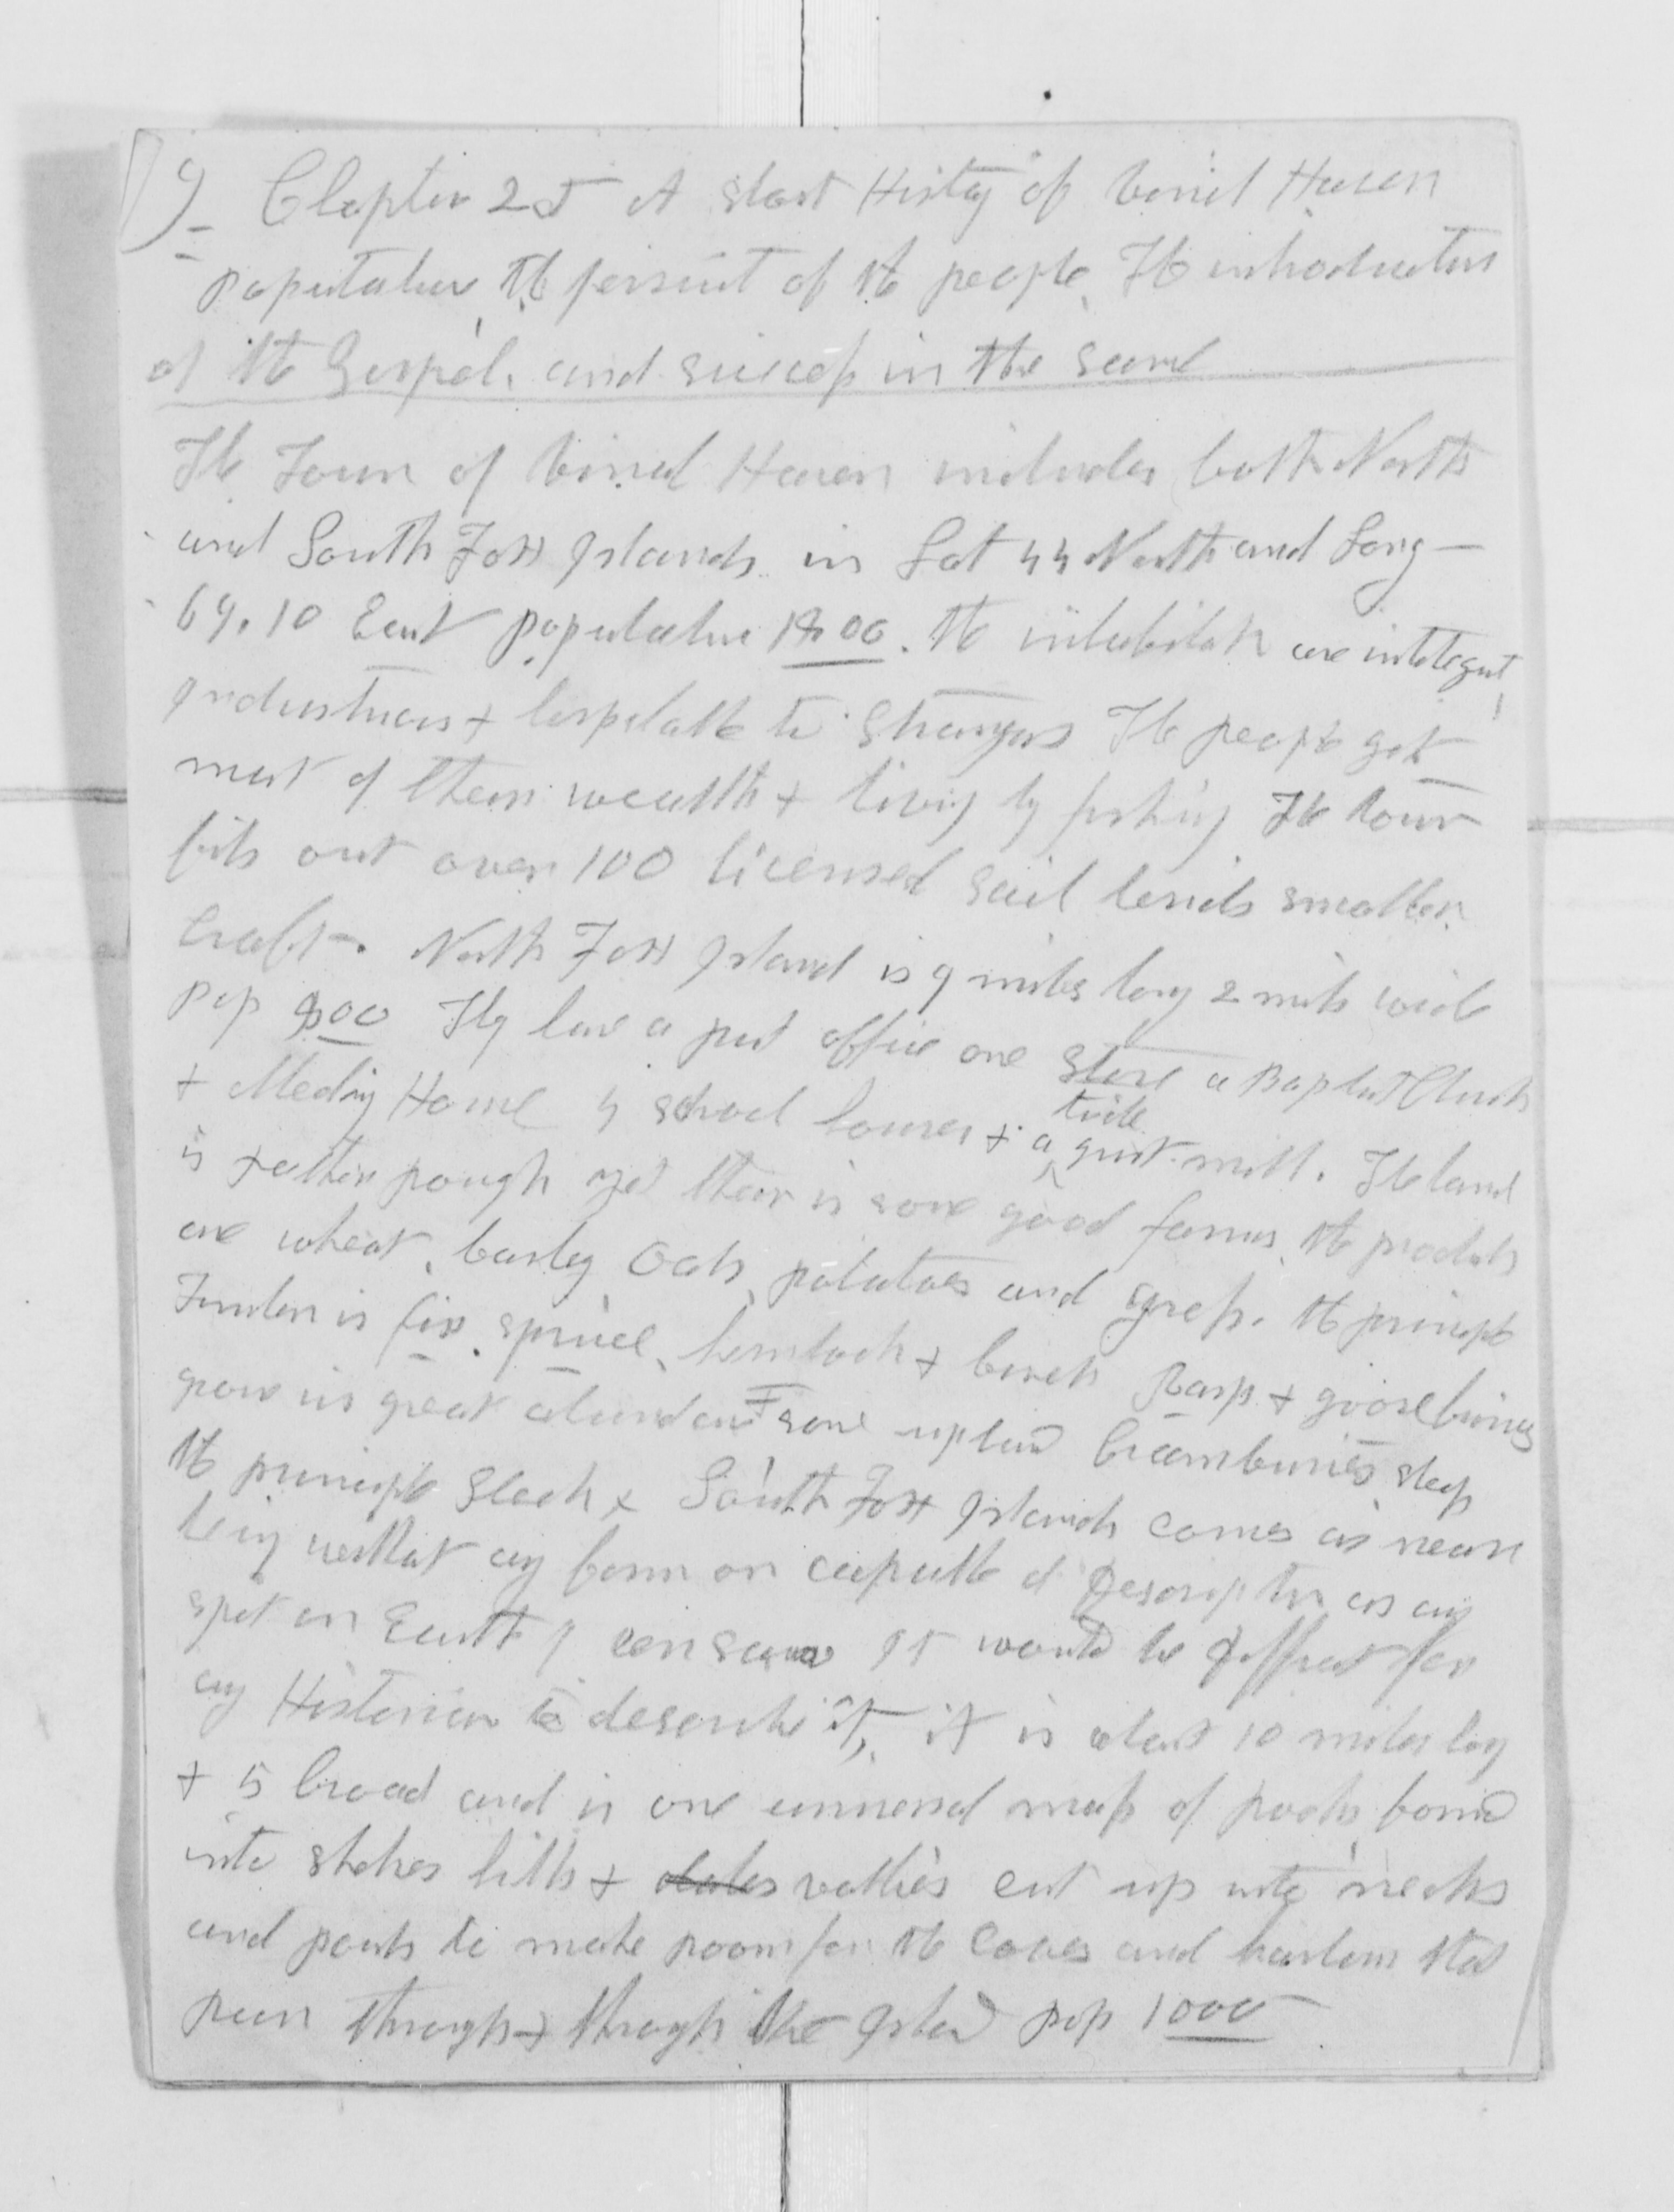 9 Chapter 25 A short History of Vinel Haven
Population, the persuit of the people, The introduction
of the Gospel, and success in the same
The Town of Vinal Haven includes both North
and South Fox Islands in Lat 44 North and Long
69.10 East population 1800. the inhabitants are inteligent,
industrious + hospitable to Strangers The people get
most of their wealth + living by fishing The town
fits out over 100 licensed sail besids smaller
Craft. North Fox Island is 9 miles long 2 mils wide
pop 800 They have a post office one Store a Baptist Church
+ Meeting House 4 school houses + a tide grist mill. The land
is rather rough yet their is some good farms, the products
are wheat, barley, Oats, potatoes and grass. the principle
Timber is fir, spruce, hemlock + birch Rasp + gooseberries
grow in great abundance + some upland Cramburies sheep
the principle Stock + South Fox Islands comes as near
being without any form or capable of Description as any
spot on Earth I ever saw It would be difficult for
any Historian to describe it, it is about 10 miles long
+ 5 broad and is one immensed mass of rocks formed
into shapes hills + dales vallies cut up into necks
and points to make room for the Coves and harbors that
run through + through the Island pop 1000